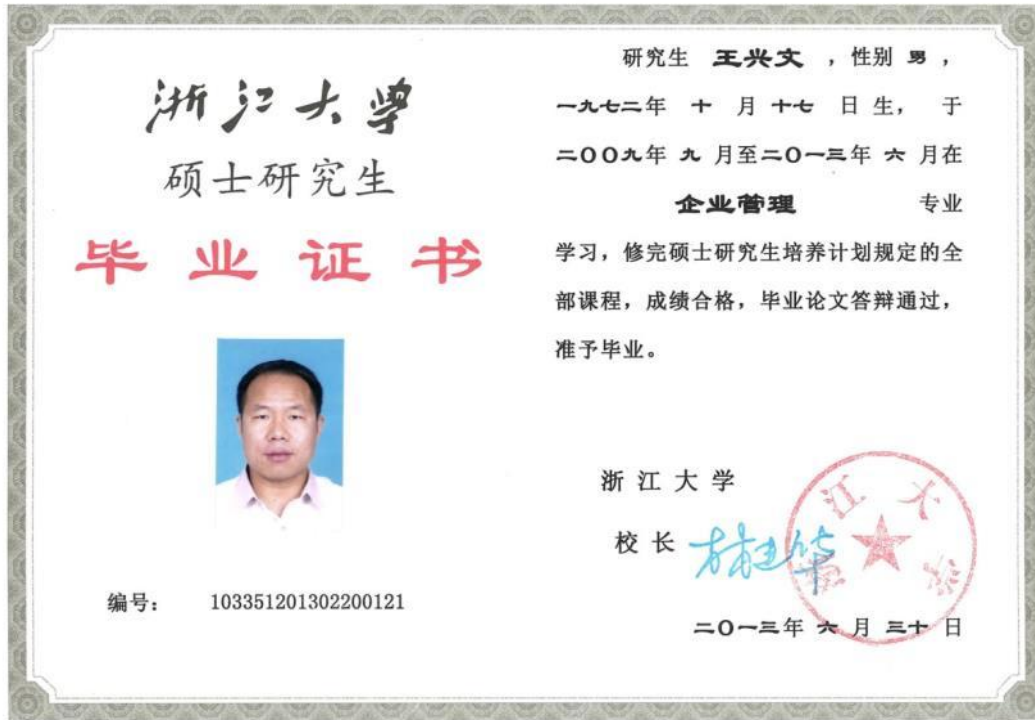 浙江大学
硕士研究生
毕业证书
编号： 103351201302200121
研究生 王兴文 ，性别 男 ，
一九七二年 十 月 十七 日 生， 于
二〇〇九年 九 月至二〇一三年 六 月在
企业管理 专业
学习，修完硕士研究生培养计划规定的全
部课程，成绩合格，毕业论文答辩通过，
准予毕业。
浙 江 大 学
校 长
浙江大学
二〇一三年 六 月 三十 日